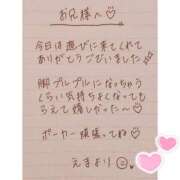 お兄様へ♡
今日は遊びに来てくれて
ありがとうございました
脚プルプルになっちゃう
くらい気持ちよくなっても
らえて嬉しかった〜♡
ポーカー頑張ってね♡
えまより☺